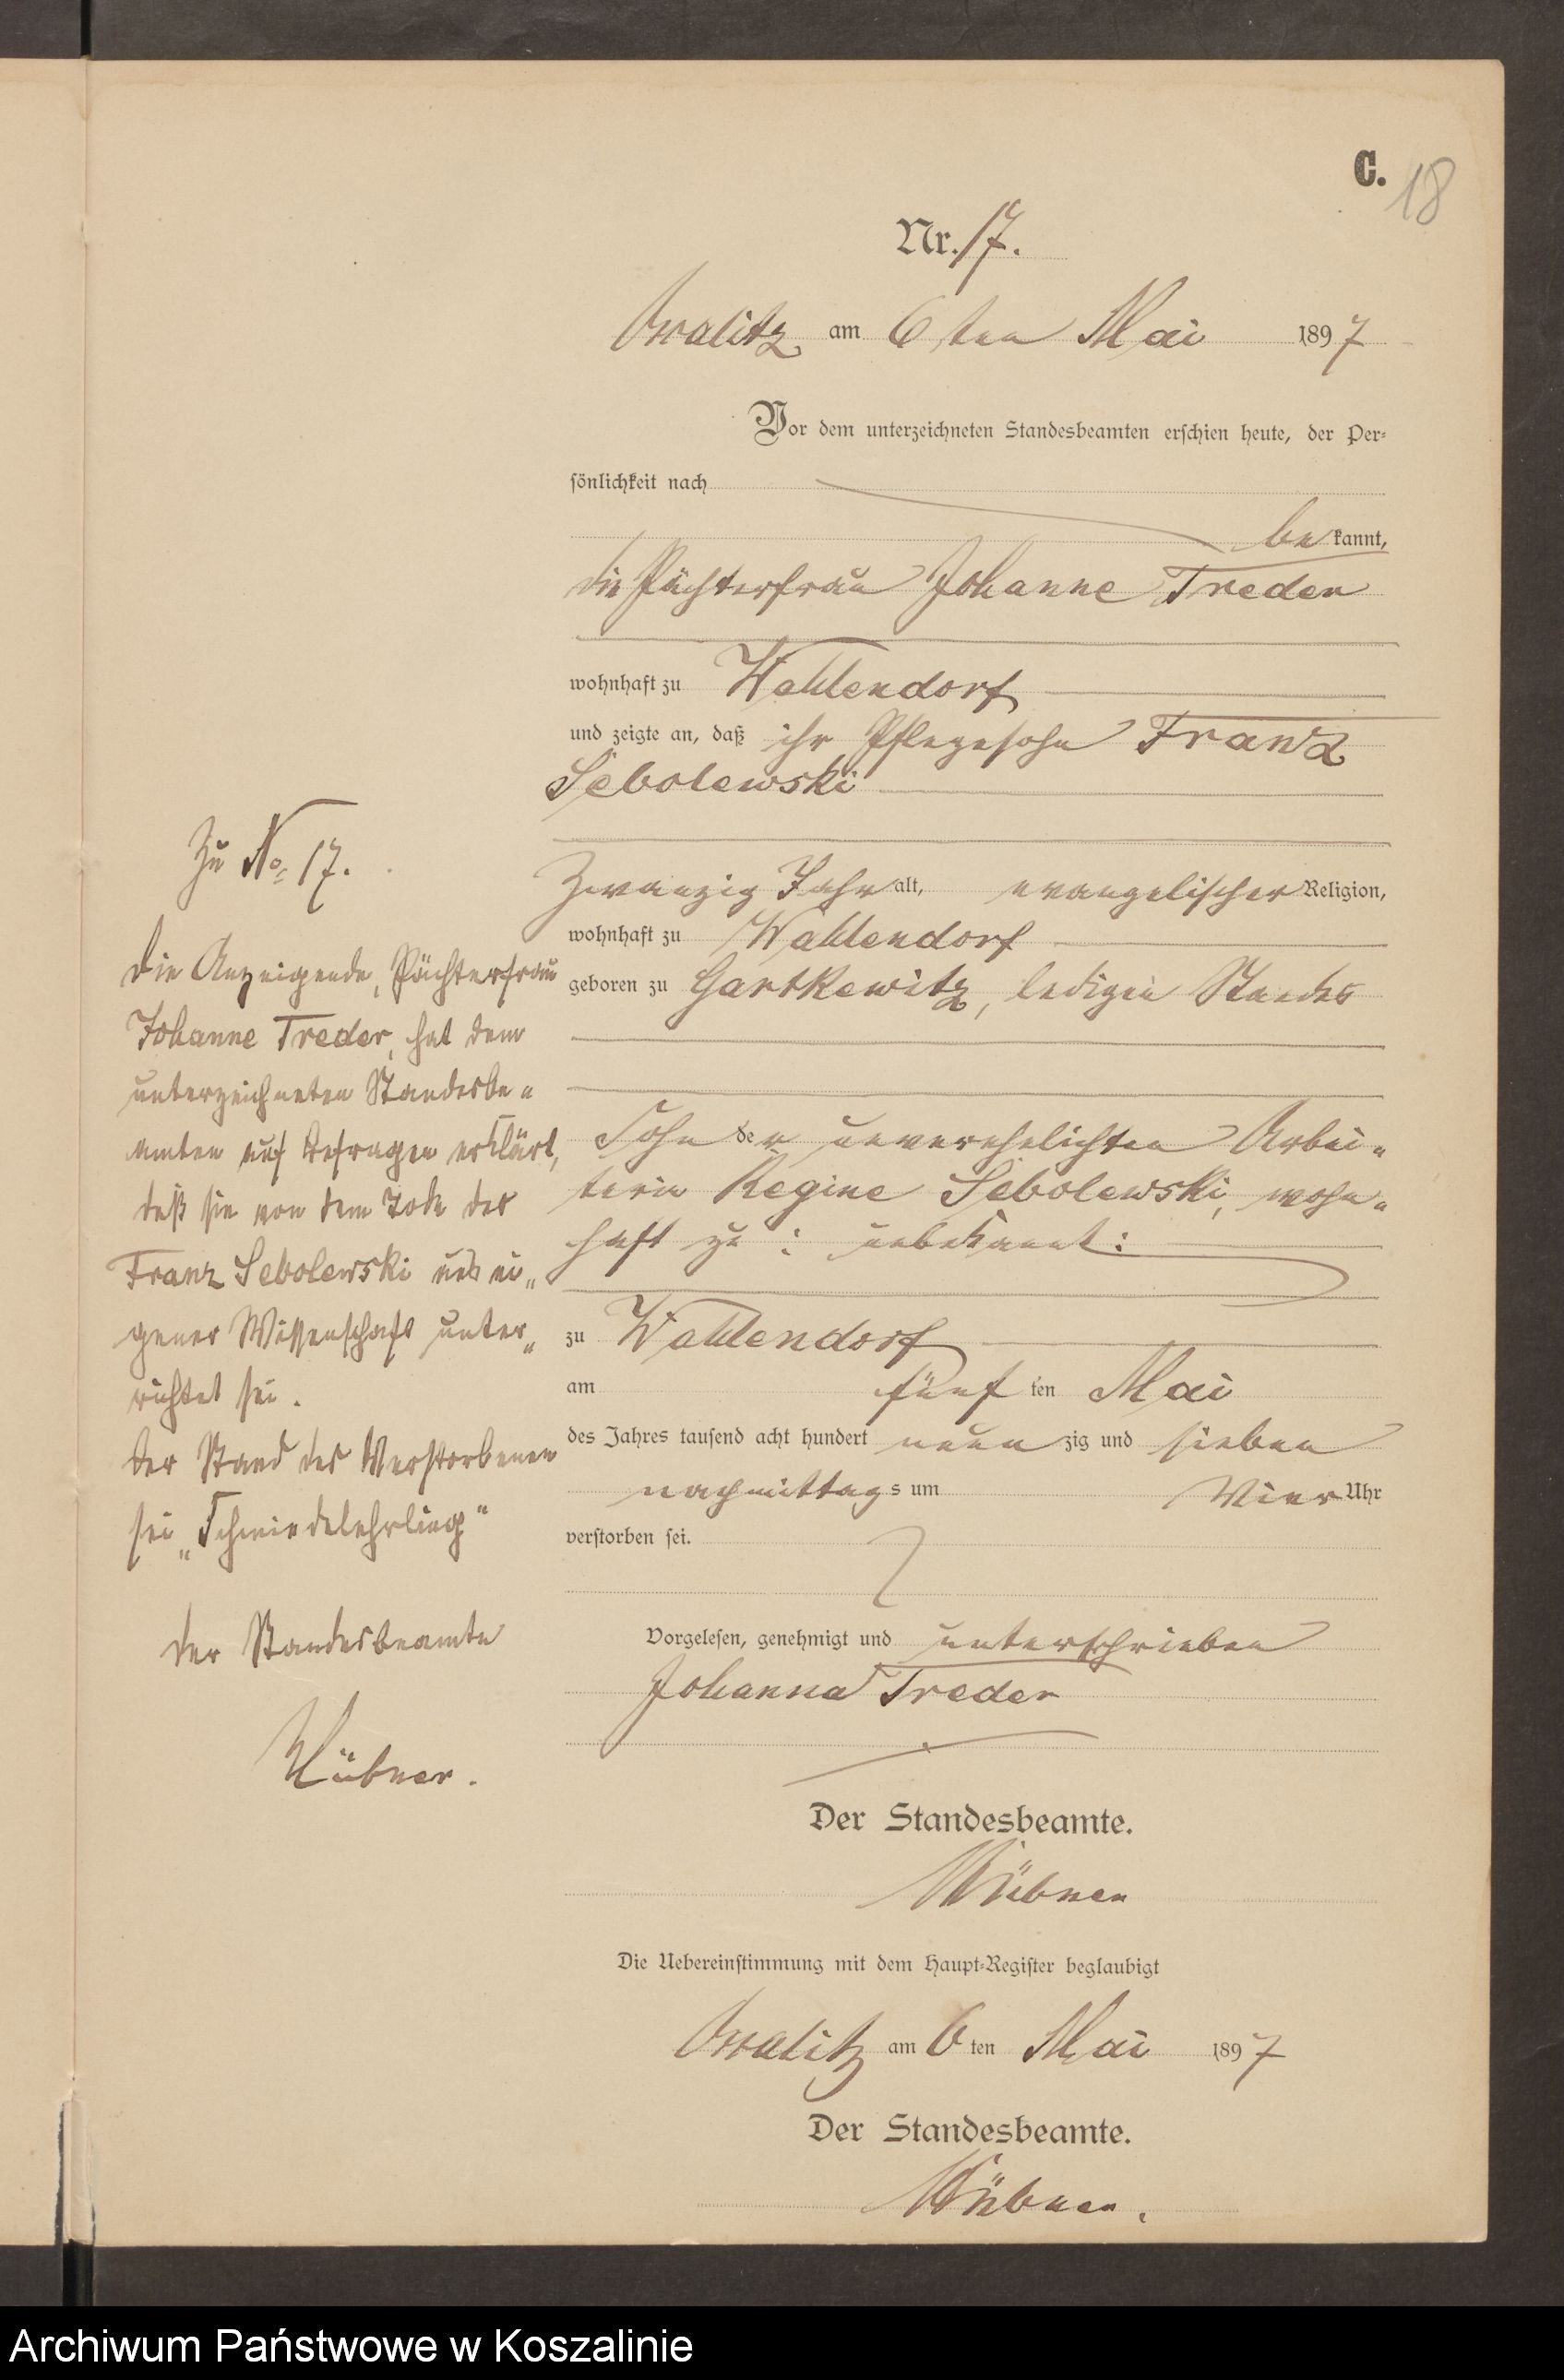 C. 18
Nr. 17.
Oralitz am 6ten Mai 1897
Vor dem unterzeichneten Standesbeamten erschien heute, der Per-
sönlichkeit nach
bekannt,
die Pächterfrau Johanne Treder
wohnhaft zu Wahlendorf
und zeigte an, daß ihr Pflegesohn Franz
Sebolewski
Zwanzig Jahr alt, evangelischer Religion,
wohnhaft zu Wahlendorf
geboren zu Gartkewitz, ledigen Standes
Sohn der unverehelichten Arbei-
terin Regine Sebolewski, wohn-
haft zu : unbekannt:
zu Wahlendorf
am fünf ten Mai
des Jahres tausend acht hundert neun zig und sieben
nachmittags um Vier Uhr
verstorben sei.
Vorgelesen, genehmigt und unterschrieben
Johanna Treder
Der Standesbeamte.
Hübner
Die Uebereinstimmung mit dem Haupt-Register beglaubigt
am 6ten Mai 1897
Der Standesbeamte.
Hübner.
Zu No 17.
Die Anzeigende, Pächterfrau
Johanne Treder, hat dem
unterzeichneten Standesbe-
amten auf Befragen erklärt,
daß sie von dem Tode des
Franz Sebolewski aus ei-
gener Wissenschaft unter-
richtet sei.
Der Stand des Verstorbenen
sei „Schmiedelehrling"
Der Standesbeamte
Hübner.
Archiwum Państwowe w Koszalinie